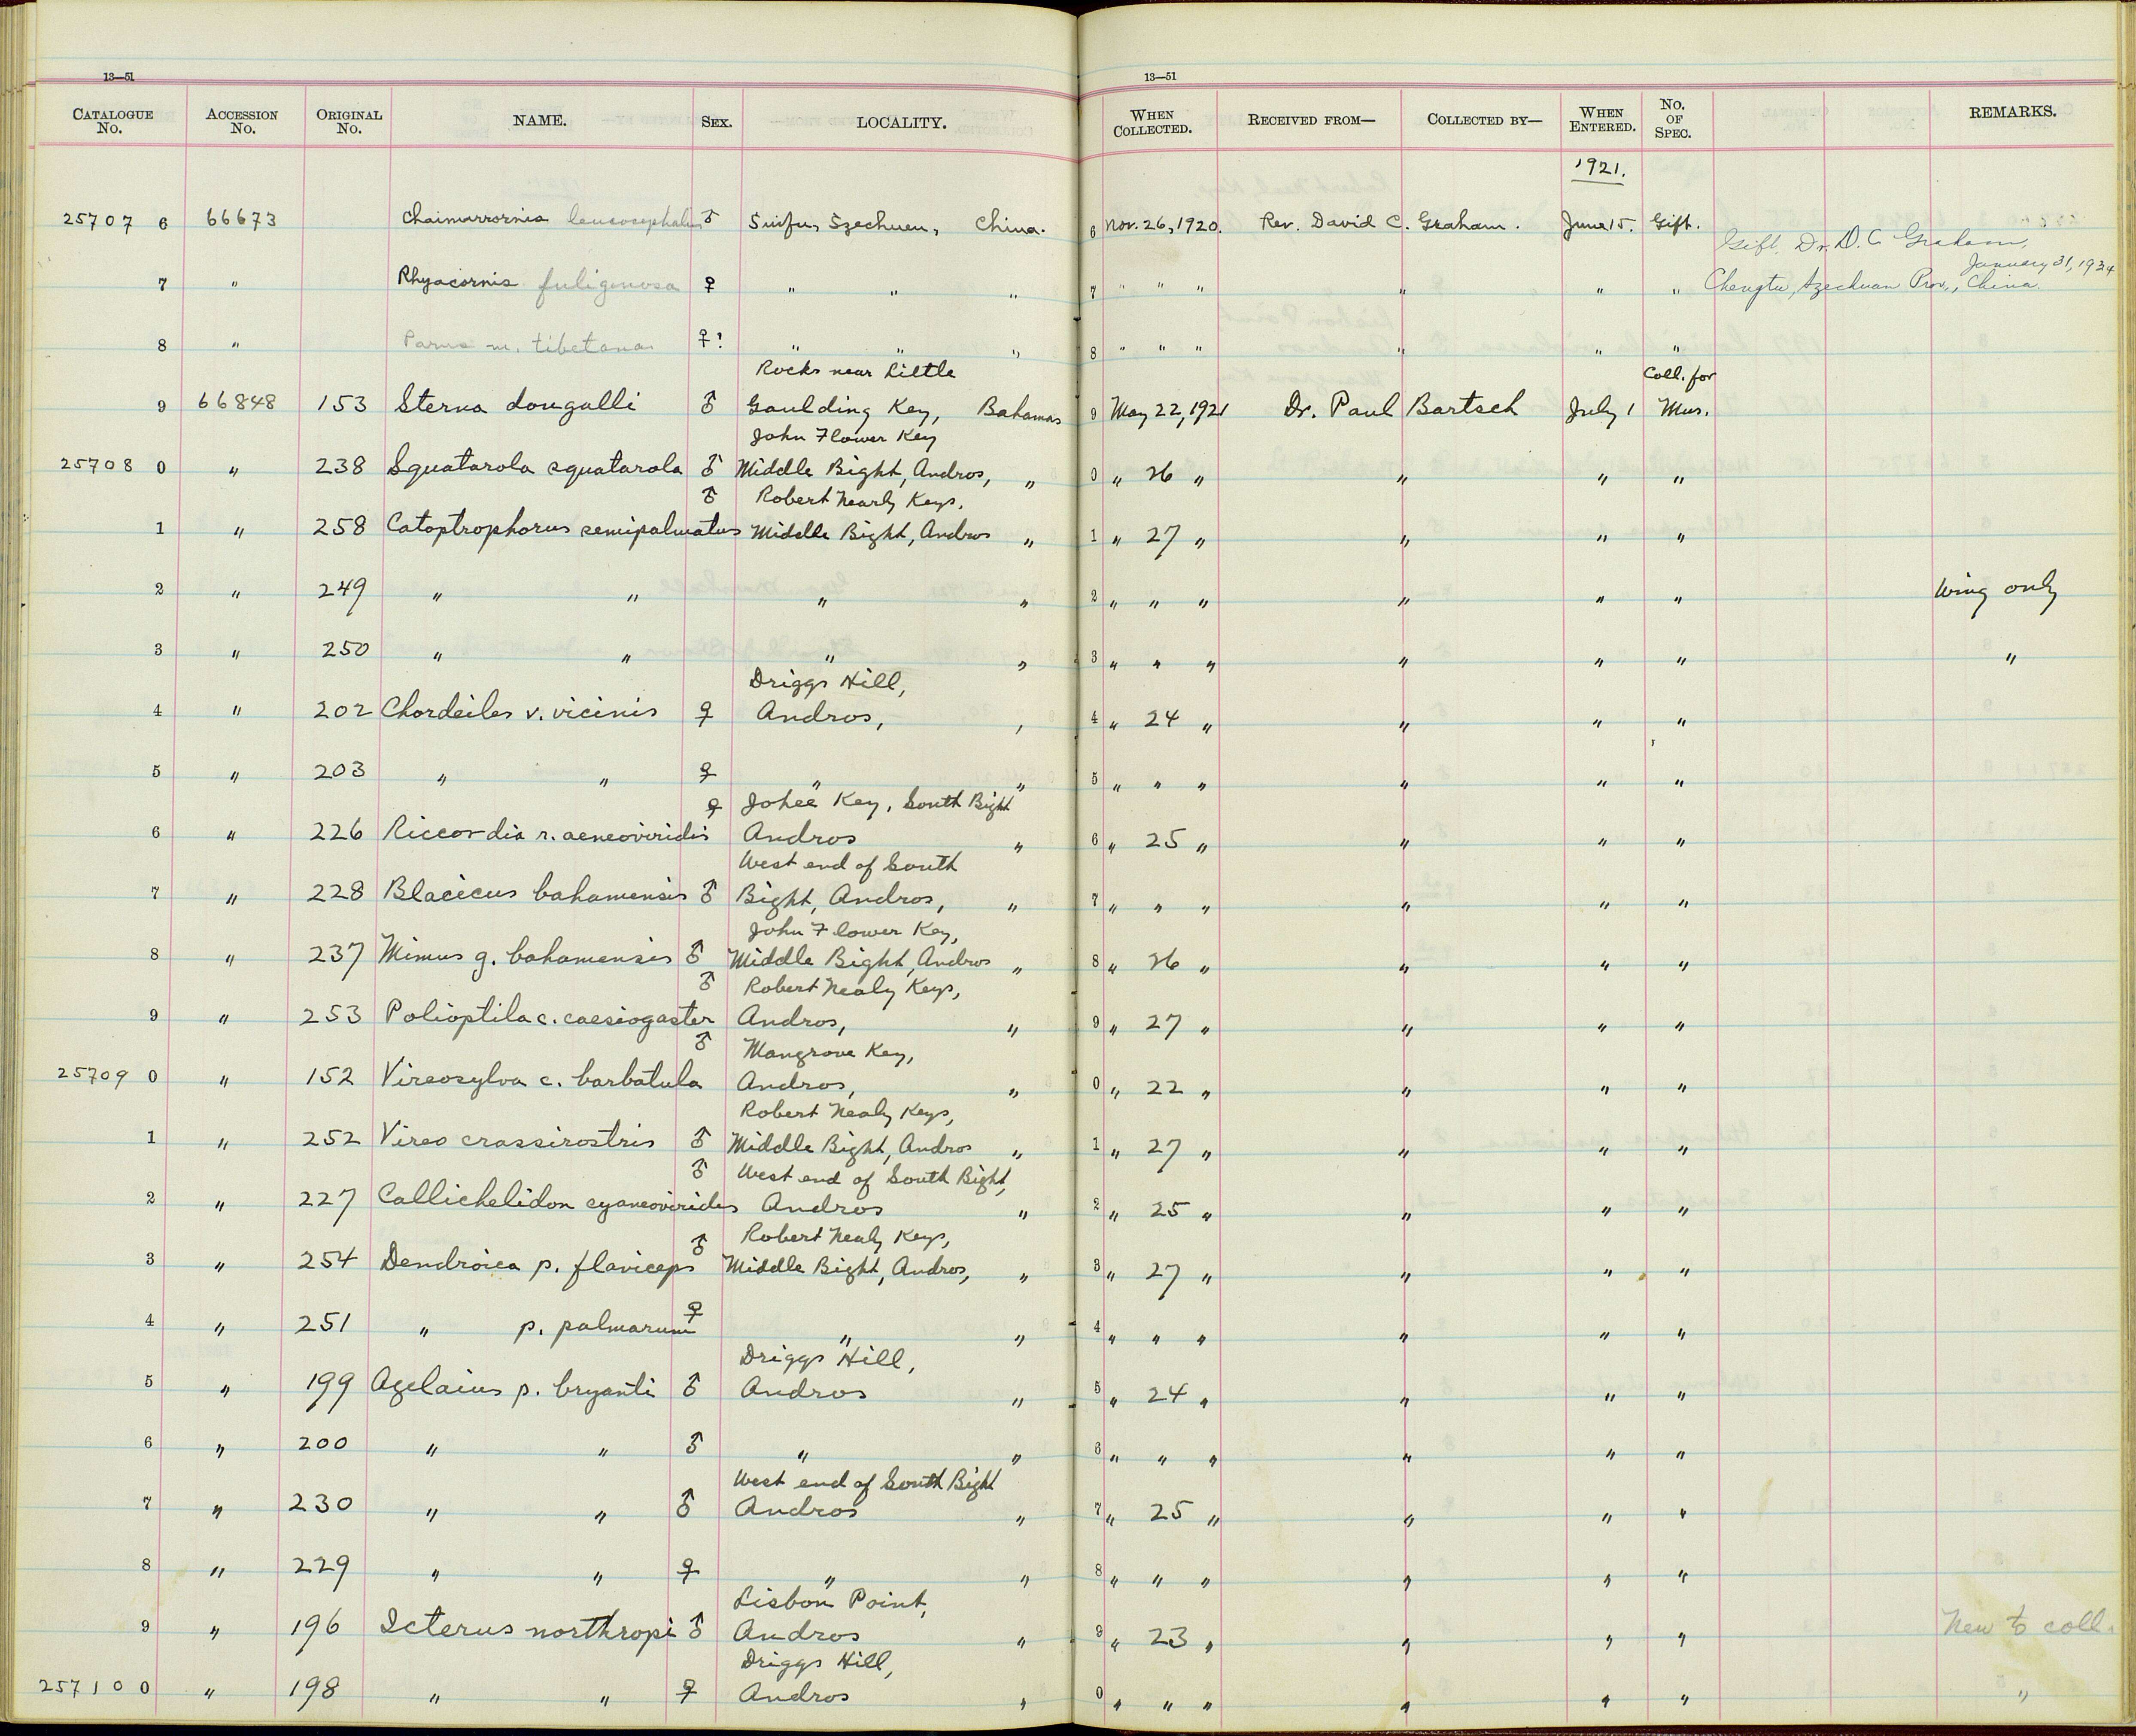 13—51 13—51
CATALOGUE No. ACCESSION No. ORIGINAL No. NAME. SEX. LOCALITY. WHEN COLLECTED. RECEIVED FROM— COLLECTED BY— WHEN ENTERED. No. OF SPEC. REMARKS.
1921.
25707 6 66673 Chaimarrornis leucocephalus ♂ Suifu, Szechuen, China. 6 Nov. 26, 1920. Rev. David C. Graham. June 15. Gift.
Gift, Dr. D. C. Graham,
January 31, 1934
7 " Rhyacornis fuliginosa ♀ " " " 7 " " " " " " Chengtu, Szechuan Prov., China.
8 " Parus m. tibetana ♀? " " " 8 " " " " " "
Rocks near Little Coll. for
9 66848 153 Sterna dougalli ♂ Gaulding Key, Bahamas 9 May 22, 1921 Dr. Paul Bartsch July 1 Mus.
John Flower Key
25708 0 " 238 Squatarola squatarola ♂ Middle Bight, Andros, " 0 " 26 " " " "
♂ Robert Nearly Keys,
1 " 258 Catoptrophorus semipalmatus Middle Bight, Andros " 1 " 27 " " " "
2 " 249 " " " " 2 " " " " " " Wing only
3 " 250 " " " " 3 " " " " " " "
Driggs Hill,
4 " 202 Chordeiles v. vicinis ♀ Andros, , 4 " 24 " " " "
5 " 203 " " ♀ " " 5 " " " " " "
♀ Johee Key, South Bight
6 " 226 Riccordia r. aeneoviridis Andros " 6 " 25 " " " "
West end of South
7 " 228 Blacicus bahamensis ♂ Bight, Andros, " 7 " " " " " "
John Flower Key,
8 " 237 Mimus g. bahamensis ♂ Middle Bight, Andros " 8 " 26 " " " "
♂ Robert Nealy Keys,
9 " 253 Polioptila c. caesiogaster Andros, " 9 " 27 " " " "
♂ Mangrove Key,
25709 0 " 152 Vireosylva c. barbatula Andros, " 0 " 22 " " " "
Robert Nealy Keys,
1 " 252 Vireo crassirostris ♂ Middle Bight, Andros " 1 " 27 " " " "
♂ West end of South Bight,
2 " 227 Callichelidon cyaneoviridis Andros " 2 " 25 " " " "
♂ Robert Nealy Keys,
3 " 254 Dendroica p. flaviceps Middle Bight, Andros, " 3 " 27 " " " "
4 " 251 " p. palmarum ♀ " " 4 " " " " " "
Driggs Hill,
5 " 199 Agelaius p. bryanti ♂ Andros " 5 " 24 " " " "
6 " 200 " " ♂ " " 6 " " " " " "
West end of South Bight
7 " 230 " " ♂ Andros " 7 " 25 " " " "
8 " 229 " " ♀ " " 8 " " " " " "
Lisbon Point,
9 " 196 Icterus northropi ♂ Andros " 9 " 23 " " " " New to coll.
Driggs Hill,
257100 0 " 198 " " ♀ Andros " 0 " " " " " " "